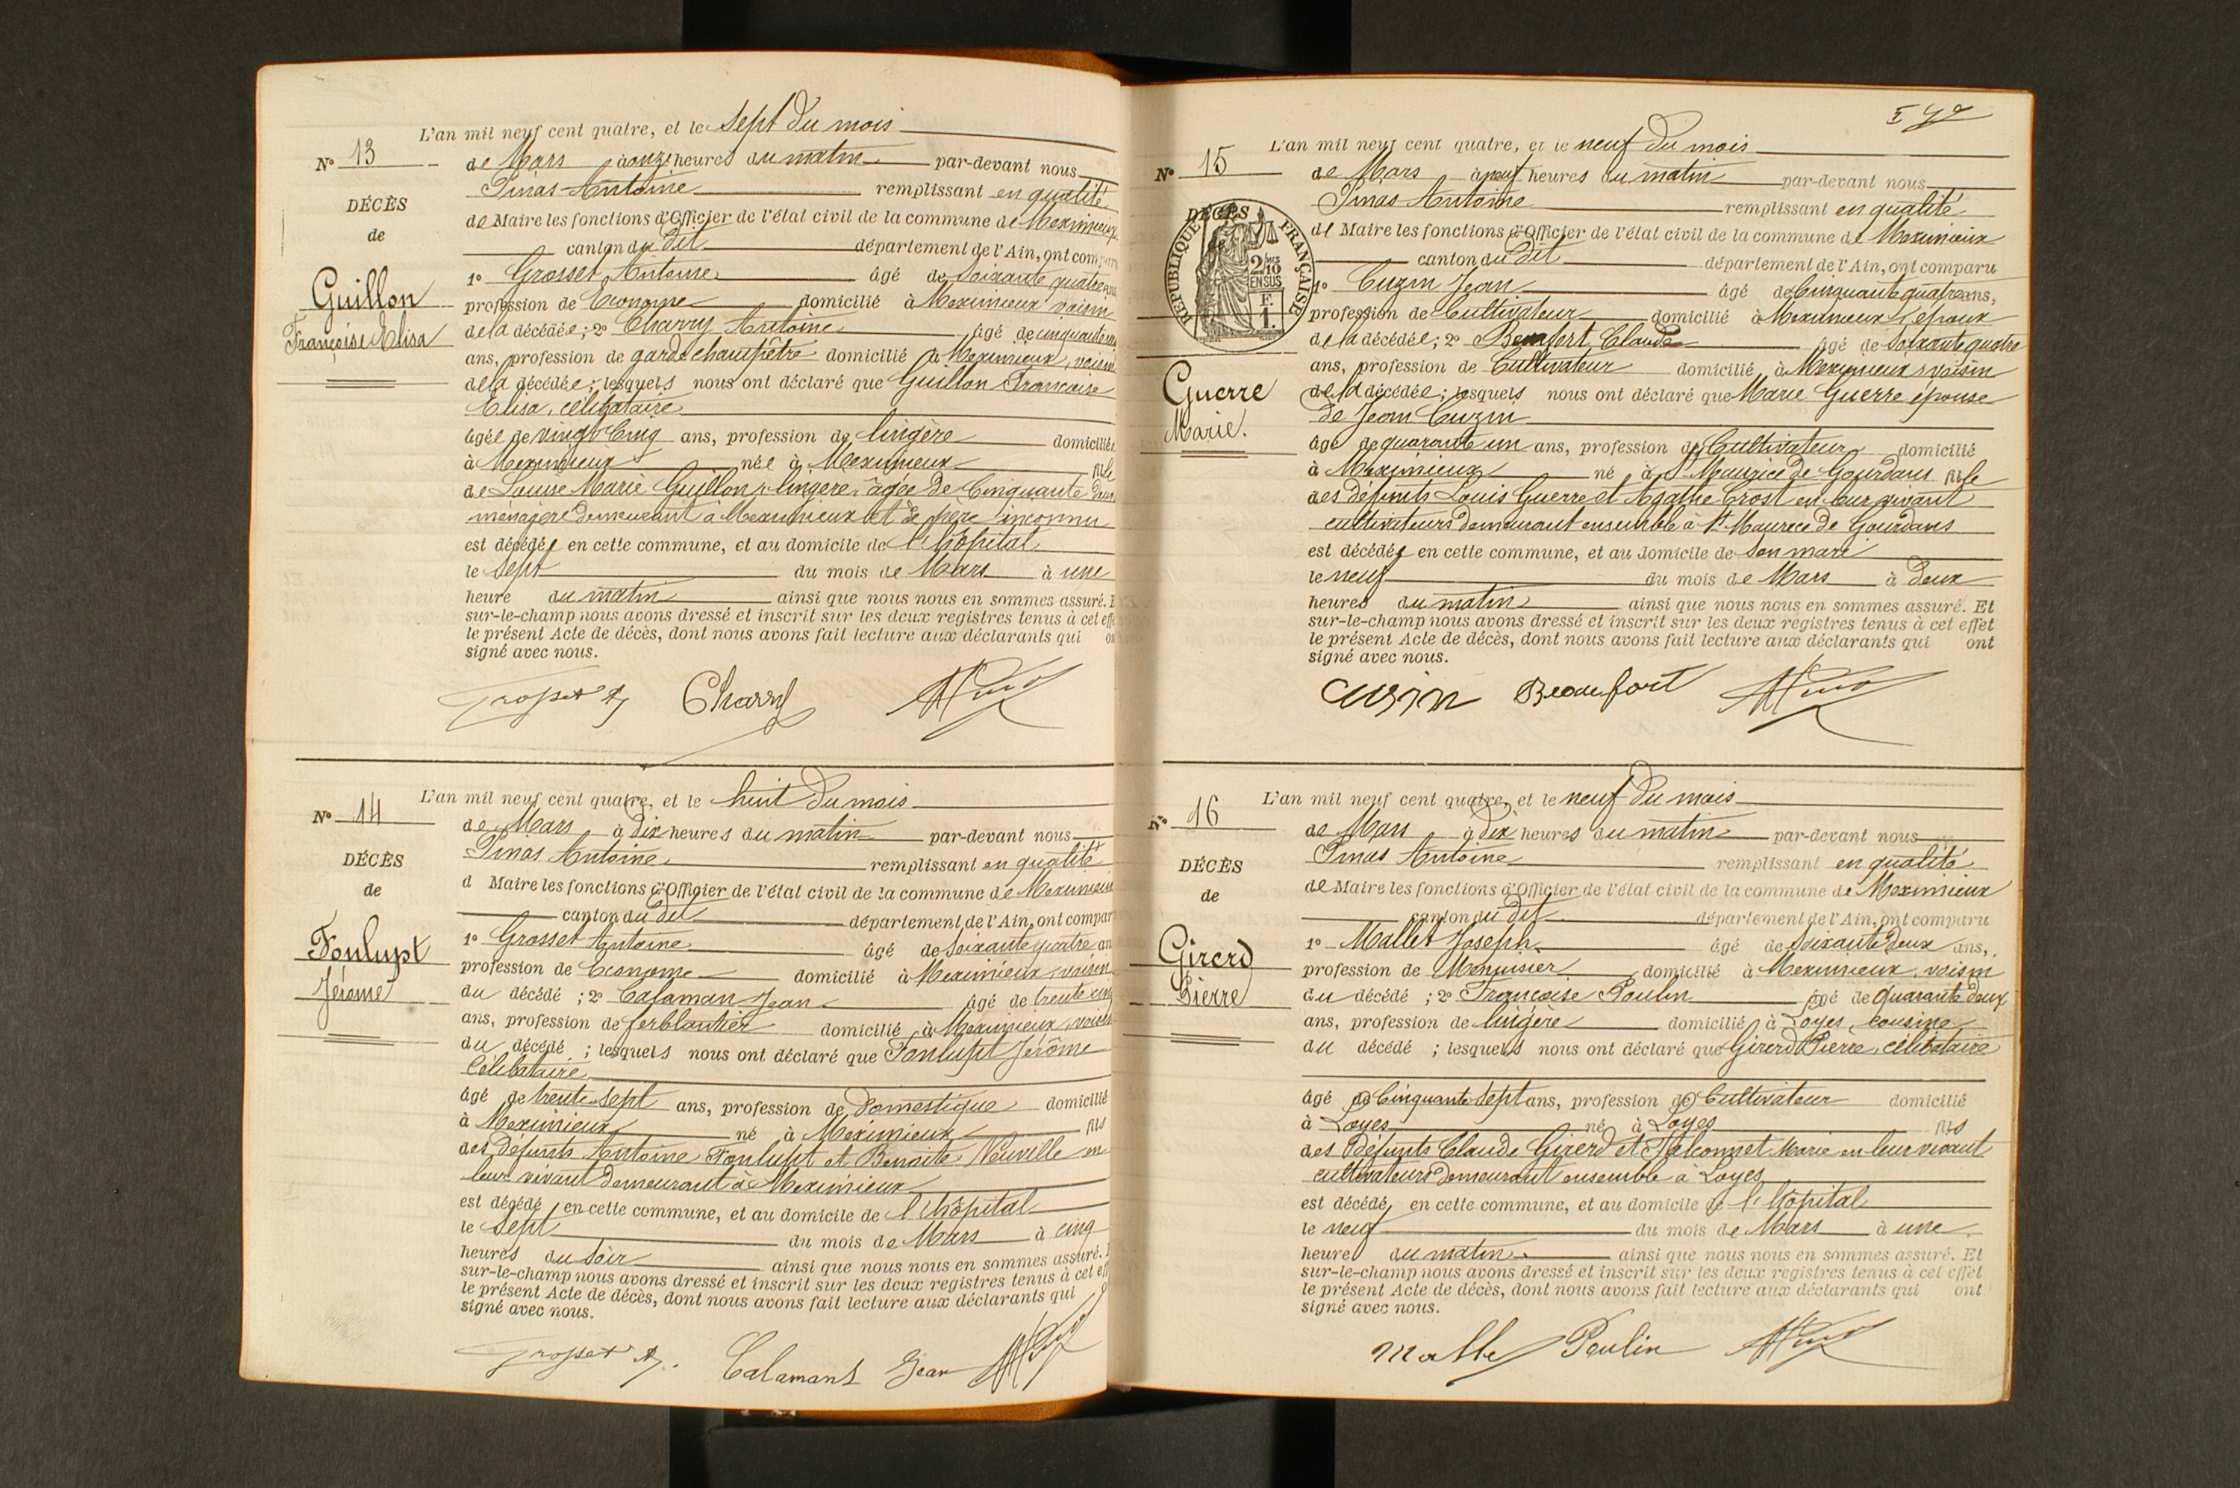 L'an mil neuf cent quatre, et le sept du mois
N° 13
de Mars à onze heures du matin par-devant nous
Pinas Antoine remplissant en qualité
DÉCÈS
de Maire les fonctions d'Officier de l'état civil de la commune de Meximieux
de
canton du dit département de l'Ain, ont comparu
1° Grosset Antoine âgé de soixante quatre ans
Guillon
profession de Econome domicilié à Meximieux voisin
Françoise Elisa
de la décédée; 2° Charry Antoine âgé de cinquante
ans, profession de garde champêtre domicilié à Meximieux, voisin
de la décédée; lesquels nous ont déclaré que Guillon Françoise
Elisa, célibataire
âgée de vingt cinq ans, profession de lingère domiciliée
à Meximieux née à Meximieux fille
de Louise Marie Guillon, lingère, âgée de Cinquante deux
ménagère demeurant à Meximieux et de père inconnu
est décédée en cette commune, et au domicile de l'hôpital
le sept du mois de Mars à une
heure du matin ainsi que nous nous en sommes assuré. Et
sur-le-champ nous avons dressé et inscrit sur les deux registres tenus à cet effet
le présent Acte de décès, dont nous avons fait lecture aux déclarants qui ont
signé avec nous.
Grosset A Charry
L'an mil neuf cent quatre, et le huit du mois
N° 14
de Mars à dix heures du matin par-devant nous
Pinas Antoine remplissant en qualité
DÉCÈS
d Maire les fonctions d'Officier de l'état civil de la commune de Meximieux
de
canton du dit département de l'Ain, ont comparu
1° Grosset Antoine âgé de soixante quatre ans
Foulupt
profession de Econome domicilié à Meximieux, voisin
Jérome
du décédé; 2° Calaman Jean âgé de trente cinq
ans, profession de ferblantier domicilié à Meximieux, voisin
du décédé; lesquels nous ont déclaré que Foulupt Jérôme
Célibataire
âgé de trente-sept ans, profession de domestique domicilié
à Meximieux né à Meximieux fils
des défunts Antoine Foulupt et Benoite Neuville en
leur vivant demeurant à Meximieux
est décédé en cette commune, et au domicile de l'hôpital
le sept du mois de Mars à cinq
heures du soir ainsi que nous nous en sommes assuré. Et
sur-le-champ nous avons dressé et inscrit sur les deux registres tenus à cet effet
le présent Acte de décès, dont nous avons fait lecture aux déclarants qui
signé avec nous.
Grosset A. Calamant Jean
L'an mil neuf cent quatre, et le neuf du mois
N° 15
de Mars à neuf heures du matin par-devant nous
Pinas Antoine remplissant en qualité
DÉCÈS
RÉPUBLIQUE FRANÇAISE
2/10 EN SUS
F. 1.
de Maire les fonctions d'Officier de l'état civil de la commune de Meximieux
canton du dit département de l'Ain, ont comparu
1° Cuzin Jean âgé de Cinquante quatre ans,
profession de Cultivateur domicilié à Meximieux, époux
de la décédée; 2° Beaufort Claude âgé de soixante quatre
ans, profession de Cultivateur domicilié à Meximieux, voisin
Guerre
Marie.
de la décédée; lesquels nous ont déclaré que Marie Guerre épouse
de Jean Cuzin
âgé de quarante un ans, profession de Cultivateur domicilié
à Meximieux né à St Maurice de Gourdans fille
des défunts Louis Guerre et Agathe Crost en leur vivant
cultivateurs demeurant ensemble à St Maurice de Gourdans
est décédée en cette commune, et au domicile de son mari
le neuf du mois de Mars à deux
heures du matin ainsi que nous nous en sommes assuré. Et
sur-le-champ nous avons dressé et inscrit sur les deux registres tenus à cet effet
le présent Acte de décès, dont nous avons fait lecture aux déclarants qui ont
signé avec nous.
Cuzin Beaufort
L'an mil neuf cent quatre, et le neuf du mois
N° 16
de Mars à dix heures du matin par-devant nous
Pinas Antoine remplissant en qualité
DÉCÈS
de Maire les fonctions d'Officier de l'état civil de la commune de Meximieux
de
canton du dit département de l'Ain, ont comparu
1° Mallet Joseph âgé de soixante deux ans,
Girerd
profession de Menuisier domicilié à Meximieux, voisin
Pierre
du décédé; 2° Françoise Poulin âgé de quarante deux
ans, profession de lingère domicilié à Loyes, cousine
du décédé; lesquels nous ont déclaré que Girerd Pierre, célibataire
âgé de Cinquante sept ans, profession de Cultivateur domicilié
à Loyes né à Loyes fils
des défunts Claude Girerd et Falconnet Marie en leur vivant
cultivateurs demeurant ensemble à Loyes
est décédé en cette commune, et au domicile de l'hôpital
le neuf du mois de Mars à une
heure du matin ainsi que nous nous en sommes assuré. Et
sur-le-champ nous avons dressé et inscrit sur les deux registres tenus à cet effet
le présent Acte de décès, dont nous avons fait lecture aux déclarants qui ont
signé avec nous.
Mallet Poulin